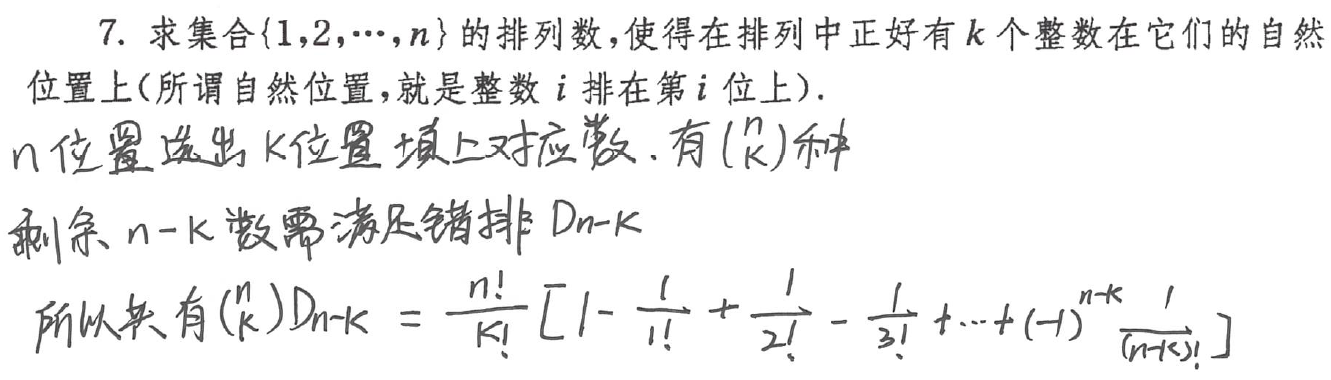 7. 求集合{1,2,…,n}的排列数,使得在排列中正好有k个整数在它们的自然
位置上(所谓自然位置,就是整数i排在第i位上).
n位置选出K位置填上对应数.有(n K)种
剩余n-K数需满足错排Dn-K
所以共有(n K)Dn-K = n!/K! [1 - 1/1! + 1/2! - 1/3! + … + (-1)^{n-K} 1/(n-K)!]